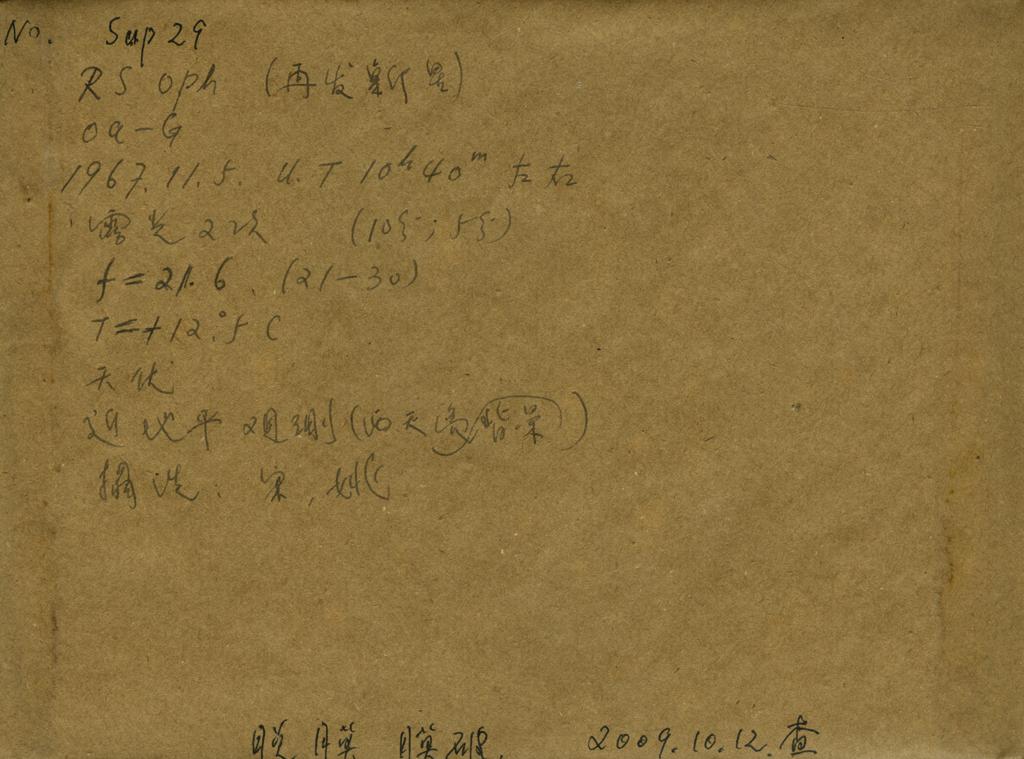 No. Sup 29
RS Oph (再发新星)
Oa-G
1967.11.5. U.T 10ʰ40ᵐ左右
露光2次 (10分; 5分)
f=21.6. (21-30)
T=+12.°5 C
天优
近地平观测(西天边背景)
摄洗: 宋, 姚
脱膜 膜破. 2009.10.12.查